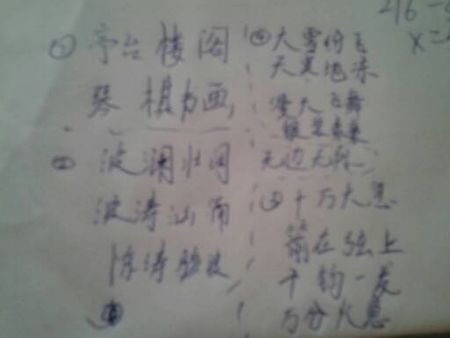 ① 亭台楼阁
琴棋书画
② 波澜壮阔
波涛汹涌
惊涛骇浪
④ 大雪纷飞
天寒地冻
漫天飞舞
银装素裹
无边无际
③ 十万火急
箭在弦上
千钧一发
万分火急
x=